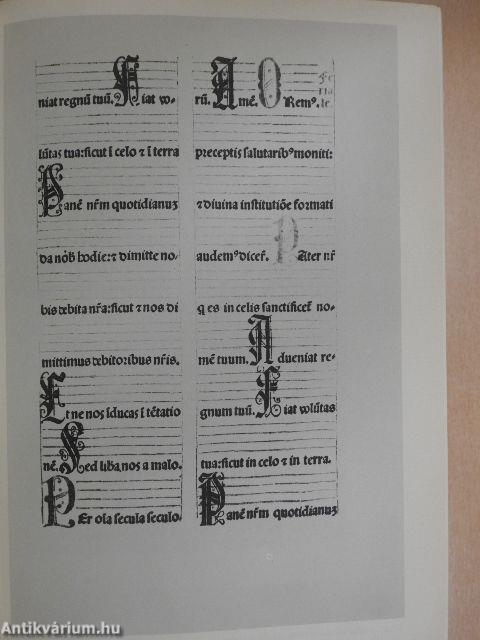 niat regnū tuū. Fiat vo-
lūtas tua: sicut ī celo ⁊ ī terra
Panē nr̄m quotidianuʒ
da nob̄ hodie: ⁊ dimitte no-
bis debita nr̄a: sicut ⁊ nos di
mittimus debitoribus nr̄is.
Et ne nos īducas ī tētatio
nē. Sed libā nos a malo.
Per oīa secula seculo-
rū. Amē. Oremꝰ. Fe
ria
le.
preceptis salutaribꝰ moniti:
⁊ divina institutiōe formati
audemꝰ dicer̄. Pater nr̄
q̄ es in celis sanctificet̄ no-
mē tuum. Adueniat re-
gnum tuū. Fiat volūtas
tua: sicut in celo ⁊ in terra.
Panē nr̄m quotidianuʒ
Antikvárium.hu